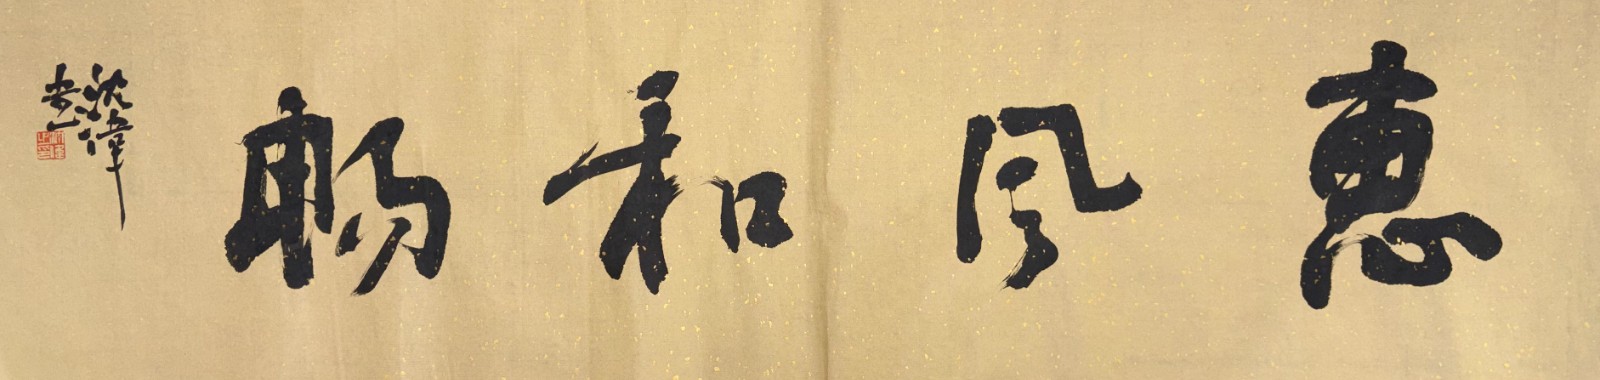 惠风和畅
沈伟
书